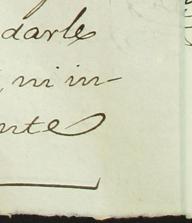 darle
, ni in-
nte